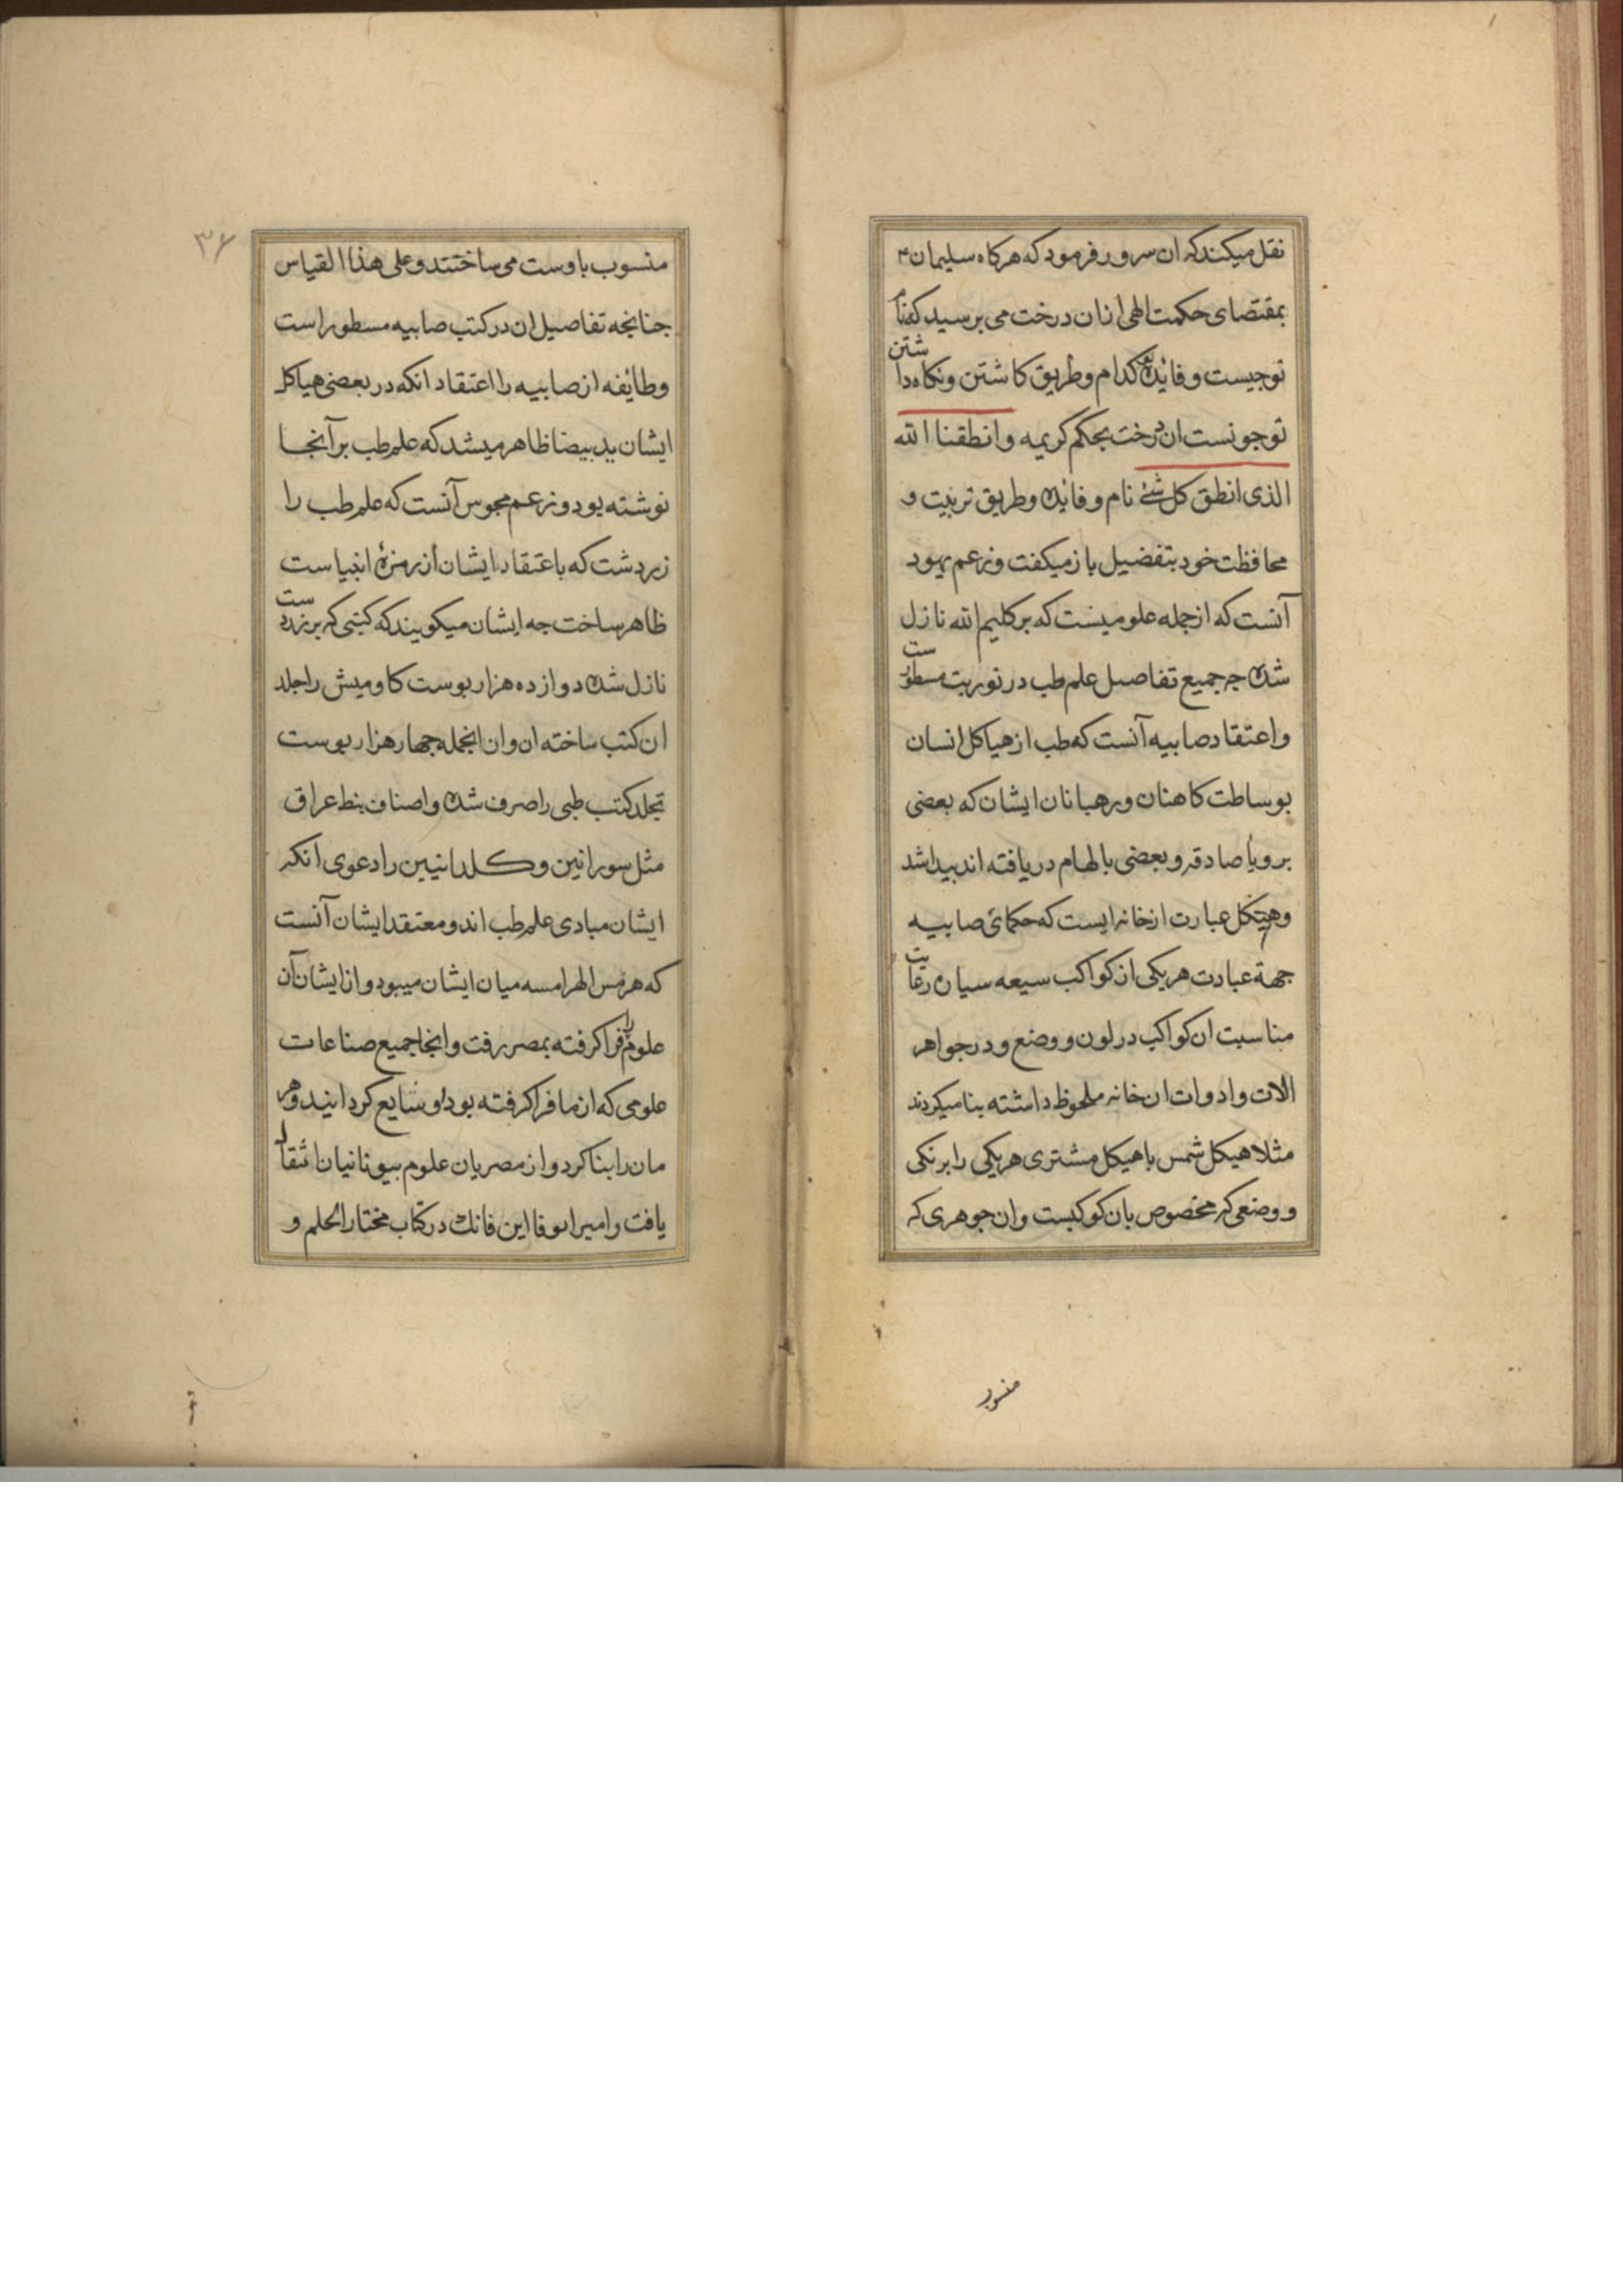 نقل میکند که ان سرور فرمود که هرکاه سلیمان ۴
بمقتضای حکمت الهی ازان درخت می برسید که نام
توجیست و فایده تو کدام و طریق کاشتن و نکاه داشتن
توجونست ان درخت بحکم کریمه وانطقنا الله
الذی انطق کل شئ نام و فایده و طریق تربیت و
محافظت خود بتفضیل باز میکفت و زعم یهود
آنست که از جمله علومیست که بر کلیم الله نازل
شده جه جمیع تفاصیل علم طب در توریت مسطورست
واعتقاد صابیه آنست که طب از هیاکل انسان
بوساطت کاهنان و رهبانان ایشان که بعضی
برویا صادقه و بعضی بالهام دریافته اند بیدا شد
وهیکل عبارت از خانه ایست که حکمائ صابیه
جهة عبادت هریکی از کواکب سیعه سیاره رعایت
مناسبت ان کواکب در لون و وضع و در جواهر
الات وادوات ان خانه ملحوظ داشته بنا میکردند
مثلا هیکل شمس با هیکل مشتری هریکی را برنکی
و وضعی که مخصوص بان کوکبست وان جوهری که
منسوب
۳۶
منسوب باوست می ساختند و علی هذا القیاس
جنانجه تفاصیل ان در کتب صابیه مسطور است
وطایفه از صابیه را اعتقاد انکه در بعضی هیاکل
ایشان ید بیضا ظاهر میشد که علم طب بر آنجا
نوشته بود و زعم مجوس آنست که علم طب را
زردشت که باعتقاد ایشان از زمرهٔ انبیاست
ظاهر ساخت جه ایشان میکویند که کتبی که بر زردست
نازل شده دوازده هزار بوست کاومیش را جلد
ان کتب ساخته ان وازانجمله جهار هزار بوست
تجلد کتب طبی را صرف شده و اصناف نبط عراق
مثل سورانین و کلدانیین را دعوی انکه
ایشان مبادی علم طب اند و معتقد ایشان آنست
که هرمس الهرامسه میان ایشان میبود و از ایشان آن
علوم را فراکرفته بمصر رفت و انجا جمیع صناعات
علومی که از ما فراکرفته بود او شایع کردانید و هر
مان را بنا کرد و از مصریان علوم بیونانیان انتقال
یافت و امیر ابوفا این فانک در کتاب مختار الحلم و